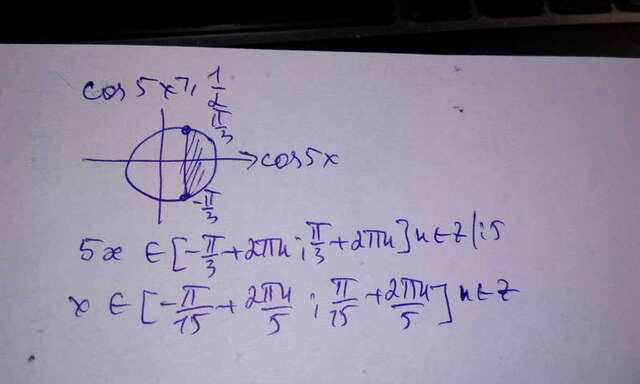 cos 5x ⩾ 1/2
π/3
cos5x
-π/3
5x ∈ [-π/3 + 2πn ; π/3 + 2πn] n ∈ Z |:5
x ∈ [-π/15 + 2πn/5 ; π/15 + 2πn/5] n ∈ Z